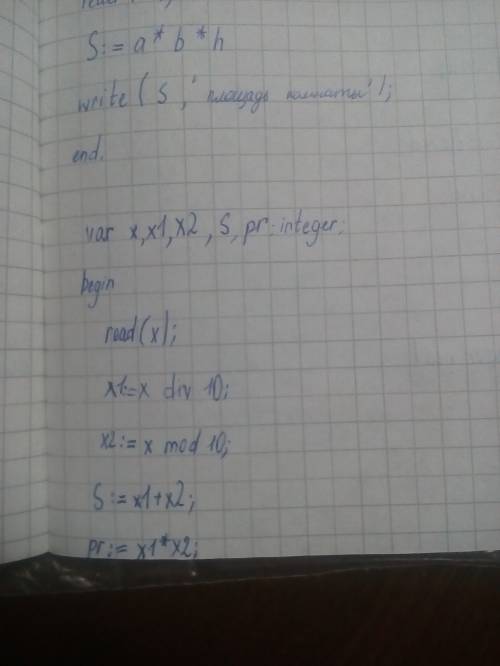 S:= a * b * h
write ( S , ' площадь комнаты' );
end.
var x, x1, x2 , S, pr: integer;
begin
read(x);
x1:=x div 10;
x2:= x mod 10;
S:= x1+x2;
pr:= x1*x2;